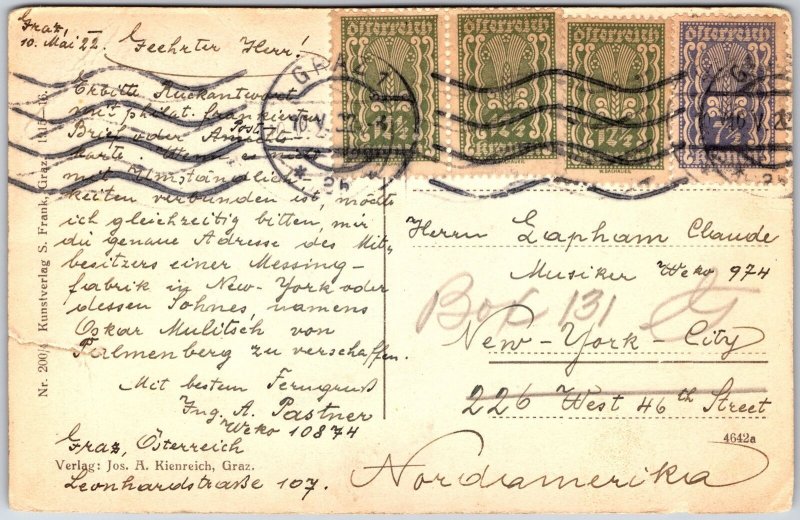 Graz,
10. Mai 22.
Geehrter Herr!
Erbitte Rückantwort
mit philat. frankierten
Brief oder Ansichts
Post
karte. Wenn es nicht
mit Umständlich
keiten verbunden ist, möchte
ich gleichzeitig bitten, mir
die genaue Adresse des Mit-
besitzers einer Messing-
fabrik in New-York oder
dessen Sohnes namens
Oskar Mulitsch von
Palmenberg zu verschaffen.
Mit bestem Ferngruß
Ing. A. Pastner
Weko 10874
Graz, Österreich
Verlag: Jos. A. Kienreich, Graz.
Leonhardstraße 107.
Nr. 200/4 Kunstverlag S. Frank, Graz.
Österreich
12½
Kronen
Österreich
12½
Kronen
Österreich
12½
Kronen
Österreich
7½
Kronen
GRAZ 1
10.V.22
Herrn Lapham Claude
Musiker Weko 974
Box 131
New-York-City
226 West 46th Street
4642a
Nordamerika